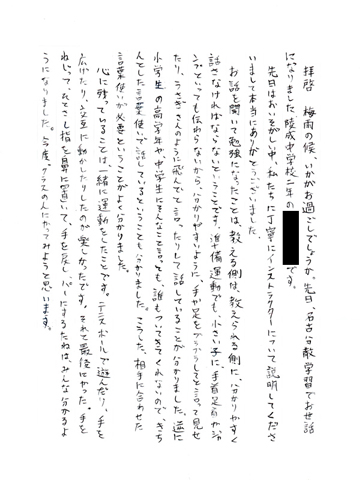 拝啓 梅雨の候、いかがお過ごしでしょうか。先日、名古屋散学習でお世話
になりました陵成中学校二年の です。
先日はおいそがしい中、私たちに丁寧にインストラクターについて説明してくださ
いまして本当にありがとうございました。
お話を聞いて勉強になったことは、教える側は、教えられる側に、分かりやすく
話さなければならないということです。準備運動でも、小さい子に、手首足首
といっても伝わらないから、分かりやすいように、手や足をぶらぶらしてと言って見せ
たり、うさぎさんのように飛んでと言ったりして話していることが分かりました。逆に
小学生の高学年や、中学生にそんなこと言っても、誰もついてきてくれないので、きち
んとした言葉使いで話しているということも分かりました。こうした、相手に合わせた
言葉使いが必要ということがよく分かりました。
心に残っていることは、一緒に運動をしたことです。テニスボールで遊んだり、手を
広げたり、交互に動かしたりしたのが楽しかったです。それで最後に
ひとさし指を鼻に置いて、手を反し、パーにするたねは、みんな分かるよ
うになりました。今度、クラスの人にやってみようと思います。